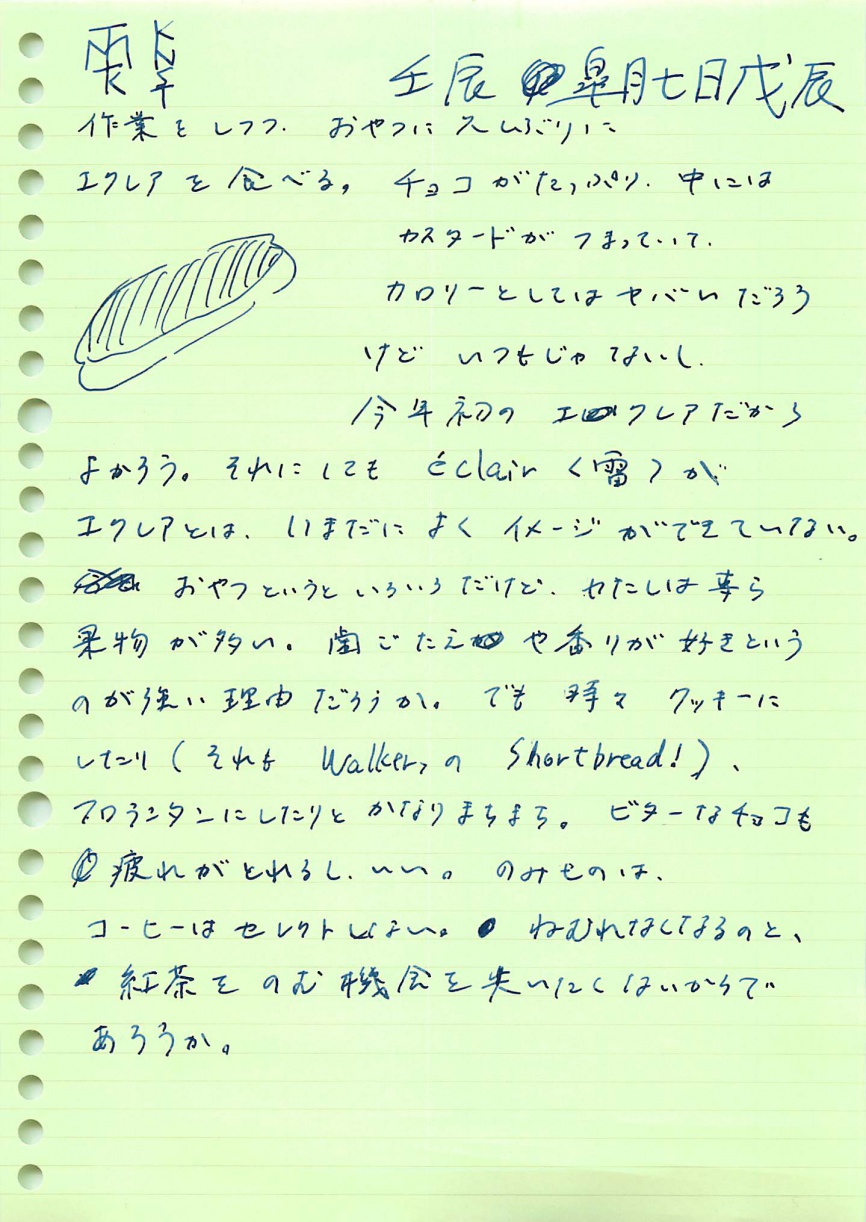 壬辰 皐月七日戊辰
作業をしつつ、おやつに久しぶりに
エクレアを食べる。チョコがたっぷり、中には
カスタードがつまっていて、
カロリーとしてはヤバいだろう
けど いつもじゃないし、
今年初の エクレアだから
よかろう。それにしても éclair (雷) が
エクレアとは、いまだによく イメージができていない。
おやつというといろいろだけど、わたしは専ら
果物が多い。歯ごたえや香りが好きという
のが強い理由だろうか。でも 時々 クッキーに
したり(それも Walkersの Shortbread!)、
フロランタンにしたりと かなりまちまち。ビターなチョコも
疲れがとれるし、いい。のみものは、
コーヒーはセレクトしない。ねむれなくなるのと、
紅茶をのむ機会を失いたくはないからで
あろうか。